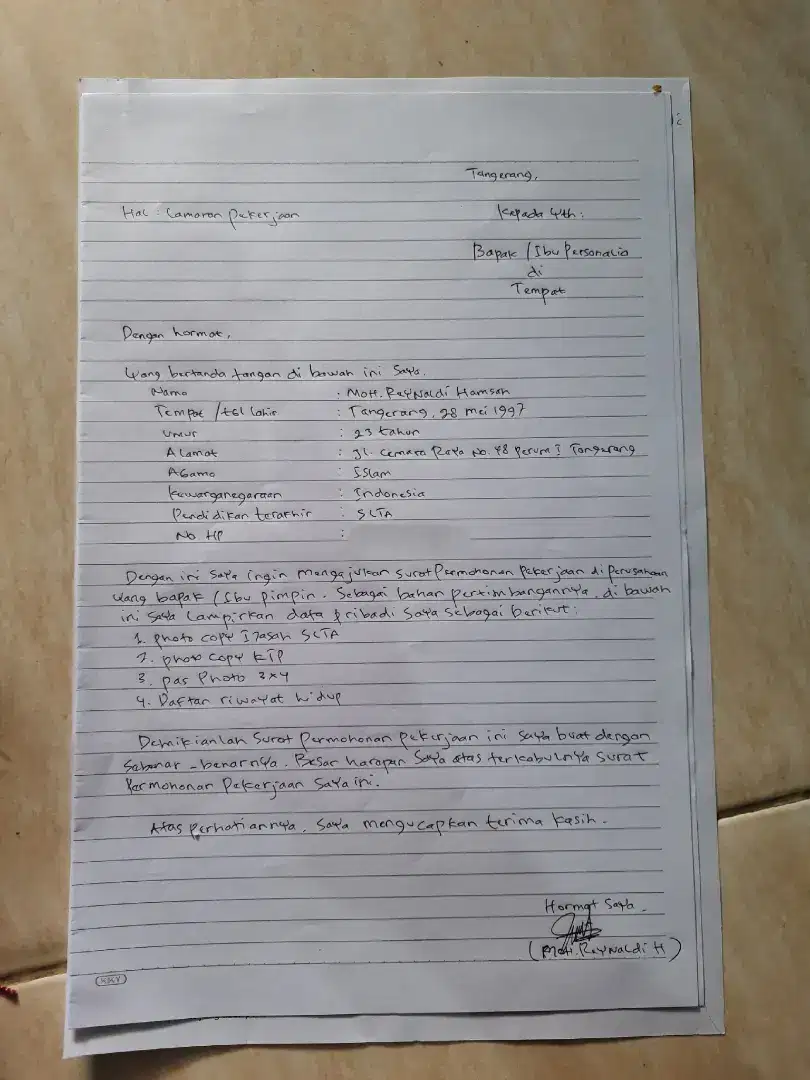 Tangerang,
Hal : Lamaran Pekerjaan
Kepada Yth :
Bapak / Ibu Personalia
di
Tempat
Dengan hormat,
Yang bertanda tangan di bawah ini saya.
Nama : MOH. ReyNaldi Hamsah
Tempat / tgl lahir : Tangerang, 28 mei 1997
Umur : 23 tahun
Alamat : Jl. Cemara Raya No. 48 Perum I Tangerang
Agama : Islam
Kewarganegaraan : Indonesia
Pendidikan terakhir : SLTA
No HP :
Dengan ini saya ingin mengajukan surat Permohonan Pekerjaan di perusahaan
yang bapak / Ibu pimpin. Sebagai bahan pertimbangannya, di bawah
ini saya lampirkan data pribadi saya sebagai berikut :
1. photo copy Ijasah SLTA
2. photo copy KTP
3. pas Photo 3x4
4. Daftar riwayat hidup
Demikianlah surat Permohonan Pekerjaan ini saya buat dengan
sebenar-benarnya. Besar harapan saya atas terkabulnya surat
Permohonan Pekerjaan saya ini.
Atas perhatiannya, saya mengucapkan terima kasih.
Hormat Saya.
(MOH. ReyNaldi H)
KKY